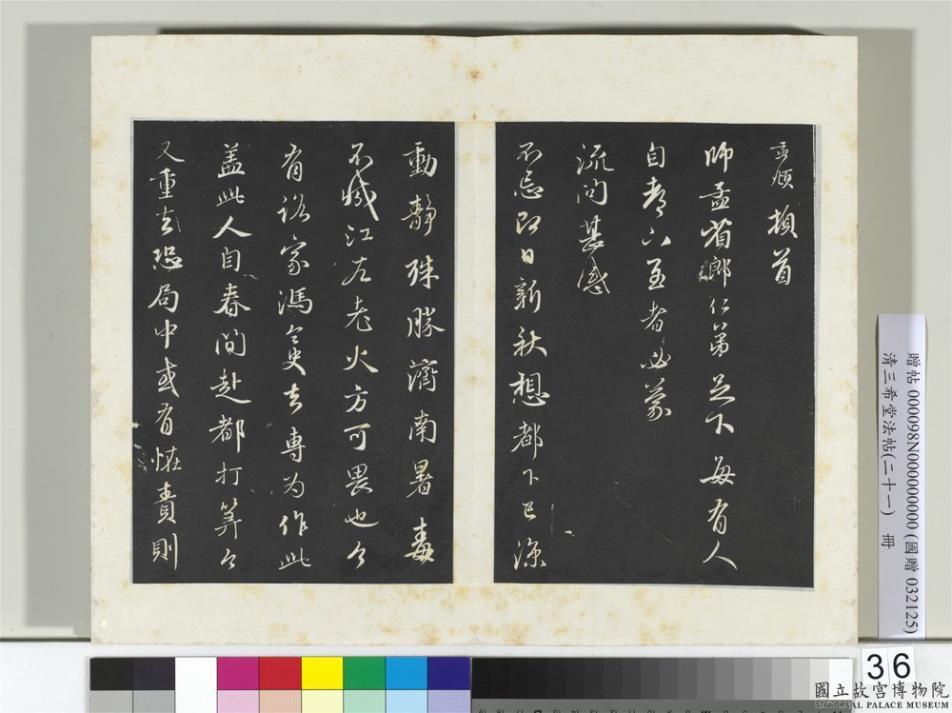 孟頫頓首
師孟省郎仁弟足下每有人
自都下至者必蒙
流問甚感
不忘即日新秋想都下已涼
動靜殊勝濟南暑毒
不減江左老火方可畏也今
有路家馮吏去專為作此
蓋此人自春間赴都打算今
又重去恐局中或有怪責則
贈帖 000098N000000000 (國贈 032125)
清三希堂法帖(二十一) 冊
36
國立故宮博物院
NATIONAL PALACE MUSEUM